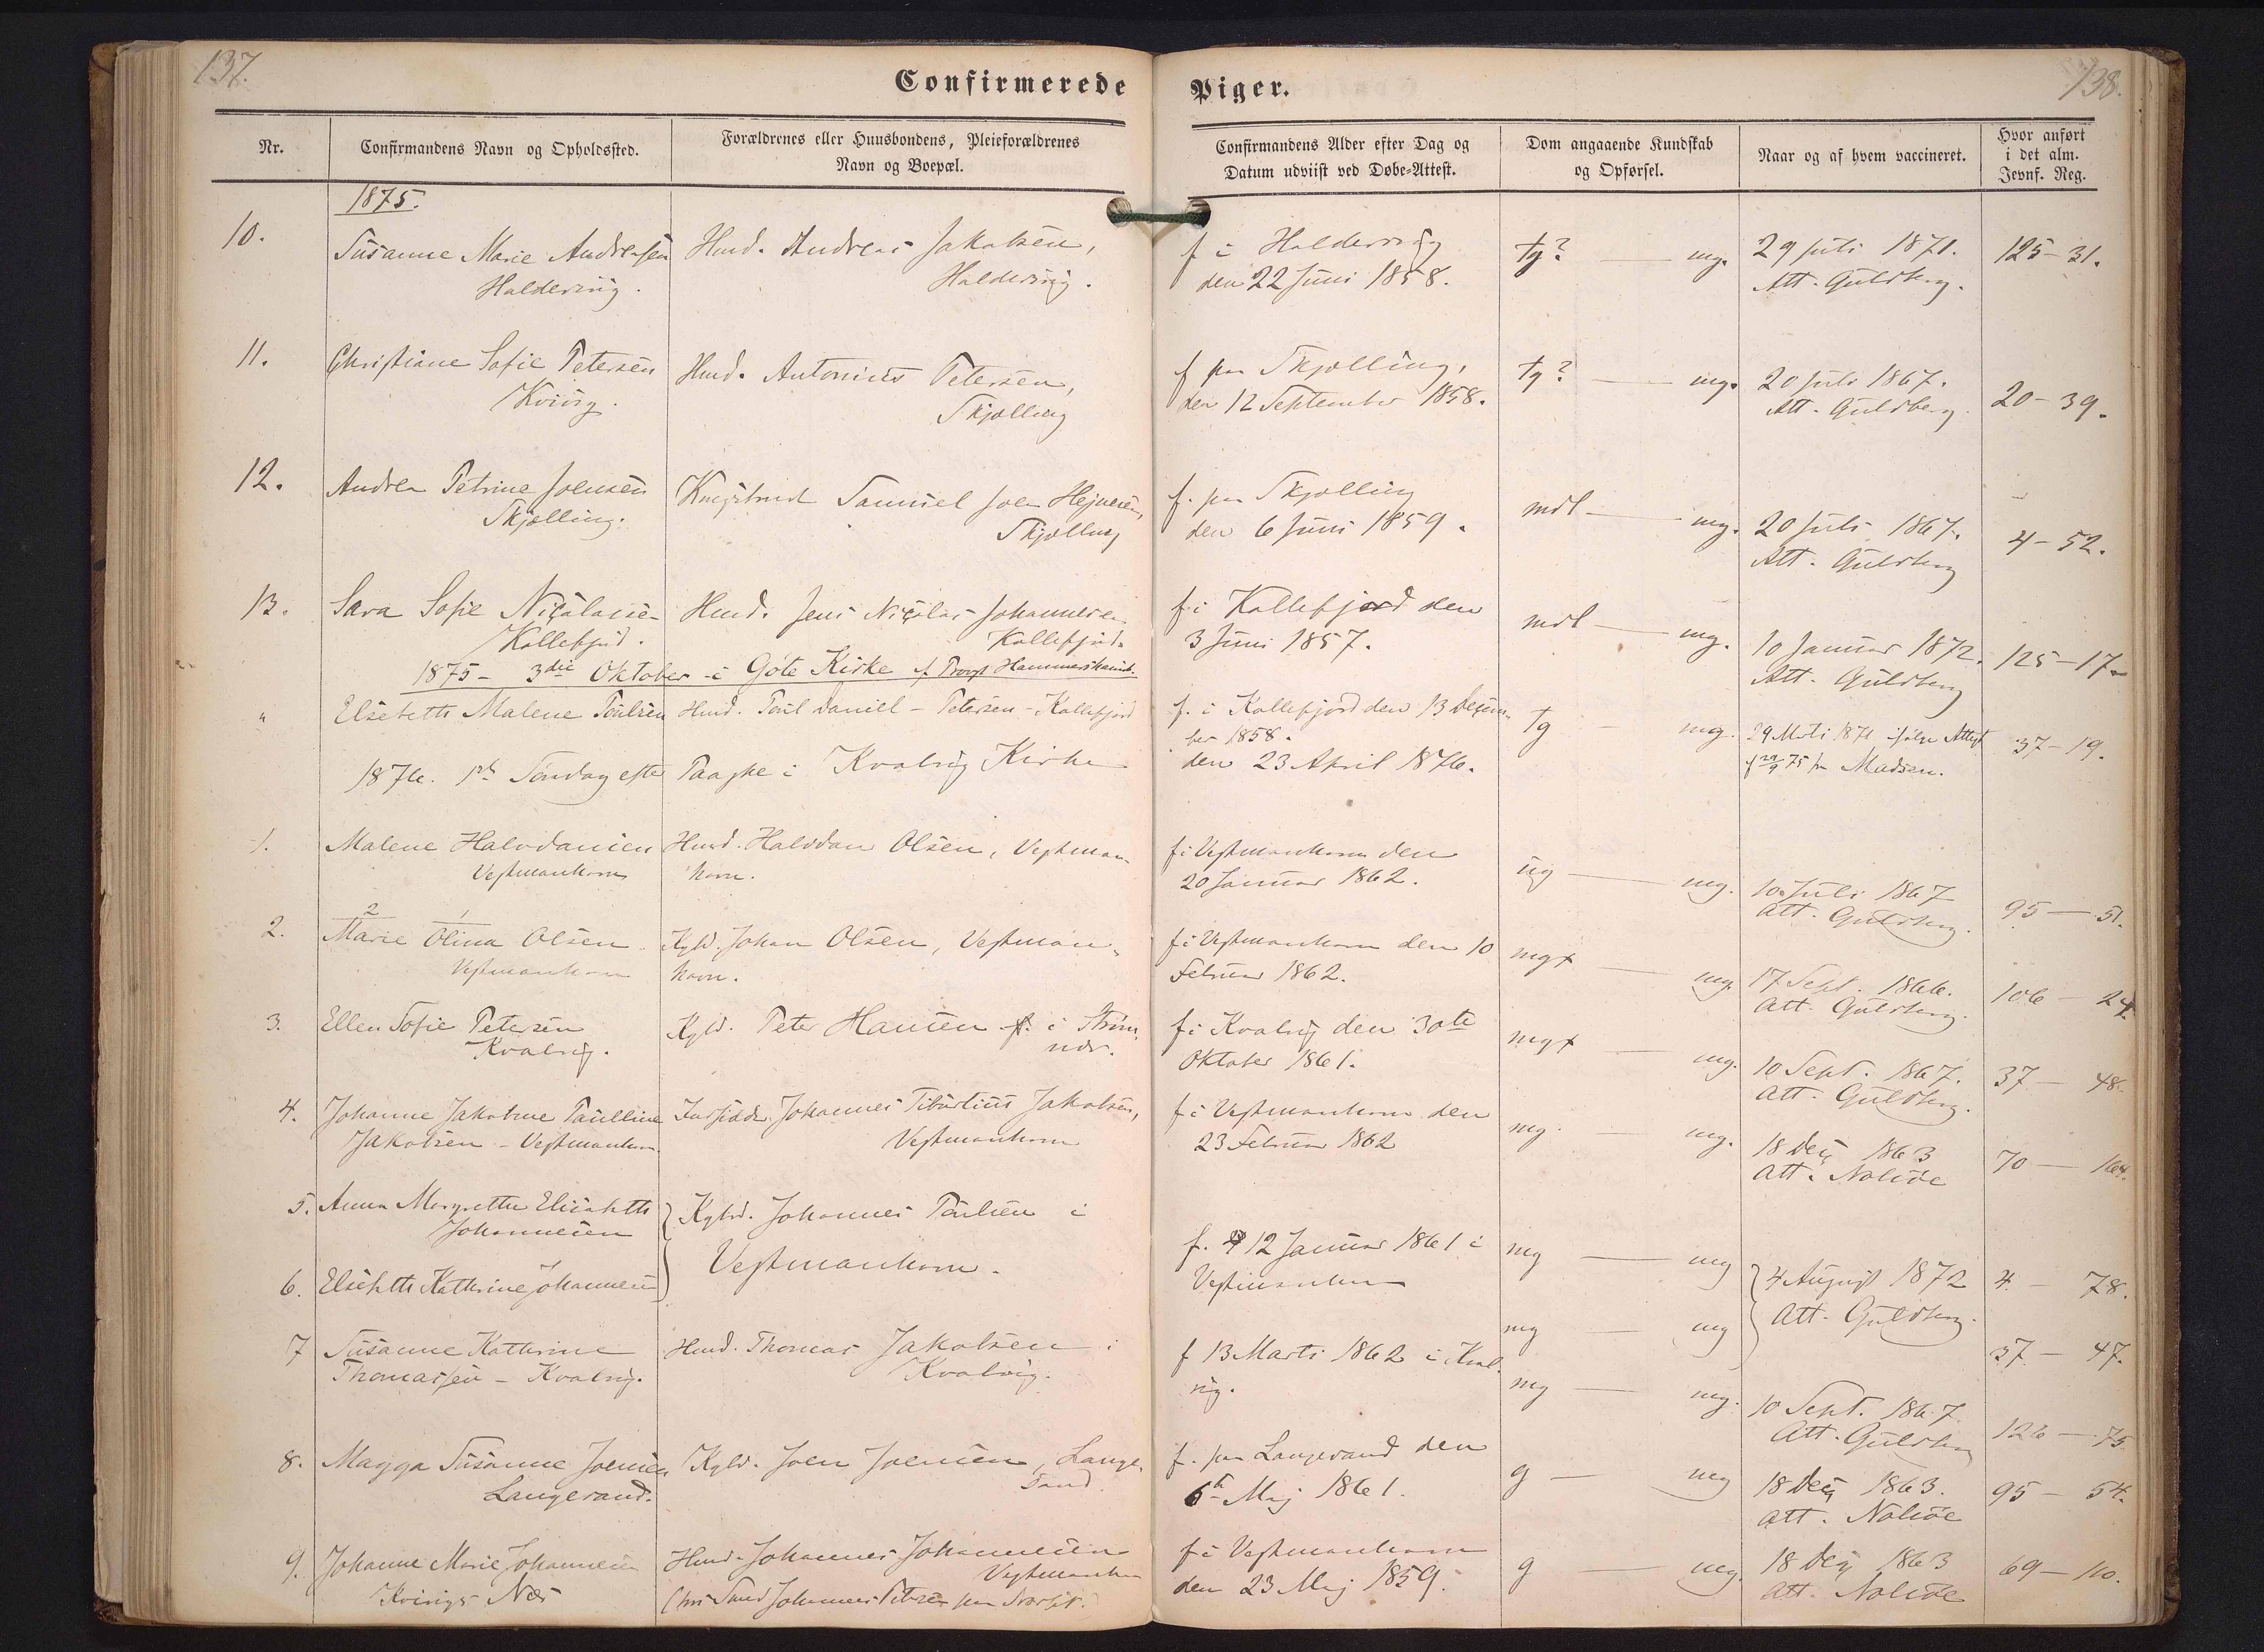 137.
138.
Confirmerede Piger.
Nr.
Confirmandens Navn og Opholdssted.
Forældrenes eller Huusbondens, Pleieforældrenes
Navn og Boepæl.
Confirmandens Alder efter Dag og
Datum udviist ved Døbe-Attest.
Dom angaaende Kundskab
og Opførsel.
Naar og af hvem vaccineret.
Hvor anført
i det alm.
Jevnf. Reg.
1875.
10.
Susanne Marie Andreasen
Haldersvig.
Husd. Andreas Jakobsen,
Haldersvig.
f i Haldersvig
den 22 Juni 1858.
tg? — mg.
29 Juli 1871.
Att. Guldberg.
125-31.
11.
Christiane Sofie Petersen
Kvivig.
Husd. Antonius Petersen,
Skjælling
f paa Skjælling,
den 12 September 1858.
tg? — mg.
20 Juli 1867.
Att. Guldberg.
20-39.
12.
Andrea Petrine Joensen
Skjælling.
Samuel Joen Hejnesen,
Skjælling
f. paa Skjælling
den 6 Juni 1859.
mdl — mg.
20 Juli 1867.
Att. Guldberg
4-52.
13.
Sara Sofie Nicolaise-
Kollefjord.
Husd. Jens Nicolas Johannesen
Kollefjord.
f. i Kollefjord den
3 Juni 1857.
mdl — mg.
10 Januar 1872.
Att. Guldberg
125-17.
1875- 3die Oktober i Gøte Kirke af Provst Hammershaimb.
"
Elsebeth Malene Poulsen
Husd. Poul Daniel - Petersen - Kollefjord
f. i Kollefjord den 13 Decem-
ber 1858.
tg - mg.
29 Marts 1871 ifølge Attest
f 29/9 75 fra Madsen.
37-19.
1876. 1ste Søndag efter Paaske i Kvalvig Kirke
den 23 April 1876.
1.
Malene Halvdansen
Vestmanhavn
Husd. Halvdan Olsen, Vestman-
havn.
f i Vestmanhavn den
20 Januar 1862.
ug — mg.
10 Juli 1867
Att. Guldberg.
95 — 51.
2.
2 1
Marie Olina Olsen
Vestmanhavn
Kgbd. Johan Olsen, Vestman-
havn.
f i Vestmanhavn den 10
Februar 1862.
mg+ — mg.
17 Sept. 1866.
Att. Guldberg.
106 - 24.
3.
Ellen Sofie Petersen
Kvalvig.
Kgbd. Peter Hansen i Strøm-
næs.
f i Kvalvig den 30te
Oktober 1861.
mg+ — mg.
10 Sept. 1867.
Att. Guldberg.
37 - 48.
4.
Johanne Jakobine Paulline
Jakobsen - Vestmanhavn
Indsidder Johannes Tiburtius Jakobsen,
Vestmanhavn
f i Vestmanhavn den
23 Februar 1862
mg. — mg.
18 Dec 1863
Att. Nolsøe
70 — 164.
5.
Anna Margrethe Elisabeth
Johannesen
Kgbd. Johannes Poulsen i
Vestmanhavn.
f. 12 Januar 1861 i
Vestmanhavn
mg — mg
4 August 1872
Att. Guldberg.
4 - 78.
6.
Elsebeth Kathrine Johannesen
mg — mg
7
Susanne Kathrine
Thomassen - Kvalvig.
Husd. Thomas Jakobsen i
Kvalvig.
f 13 Marts 1862 i Kval-
vig.
mg — mg.
10 Sept. 1867.
Att. Guldberg
37 - 47.
8.
Magga Susanne Joensen
Langesand.
Kgbd. Joen Joensen, Lange-
sand.
f. paa Langesand den
6te Maj 1861.
g — mg
18 Dec 1863.
Att. Nolsøe
126 - 75.
95 - 54.
9.
Johanne Marie Johannesen
Kvivigs Næs
Husd. Johannes Johannesen
Vestmanhavn
f i Vestmanhavn
den 23 Maj 1859.
g — mg.
18 Dec 1863
Att. Nolsøe
69 - 110.